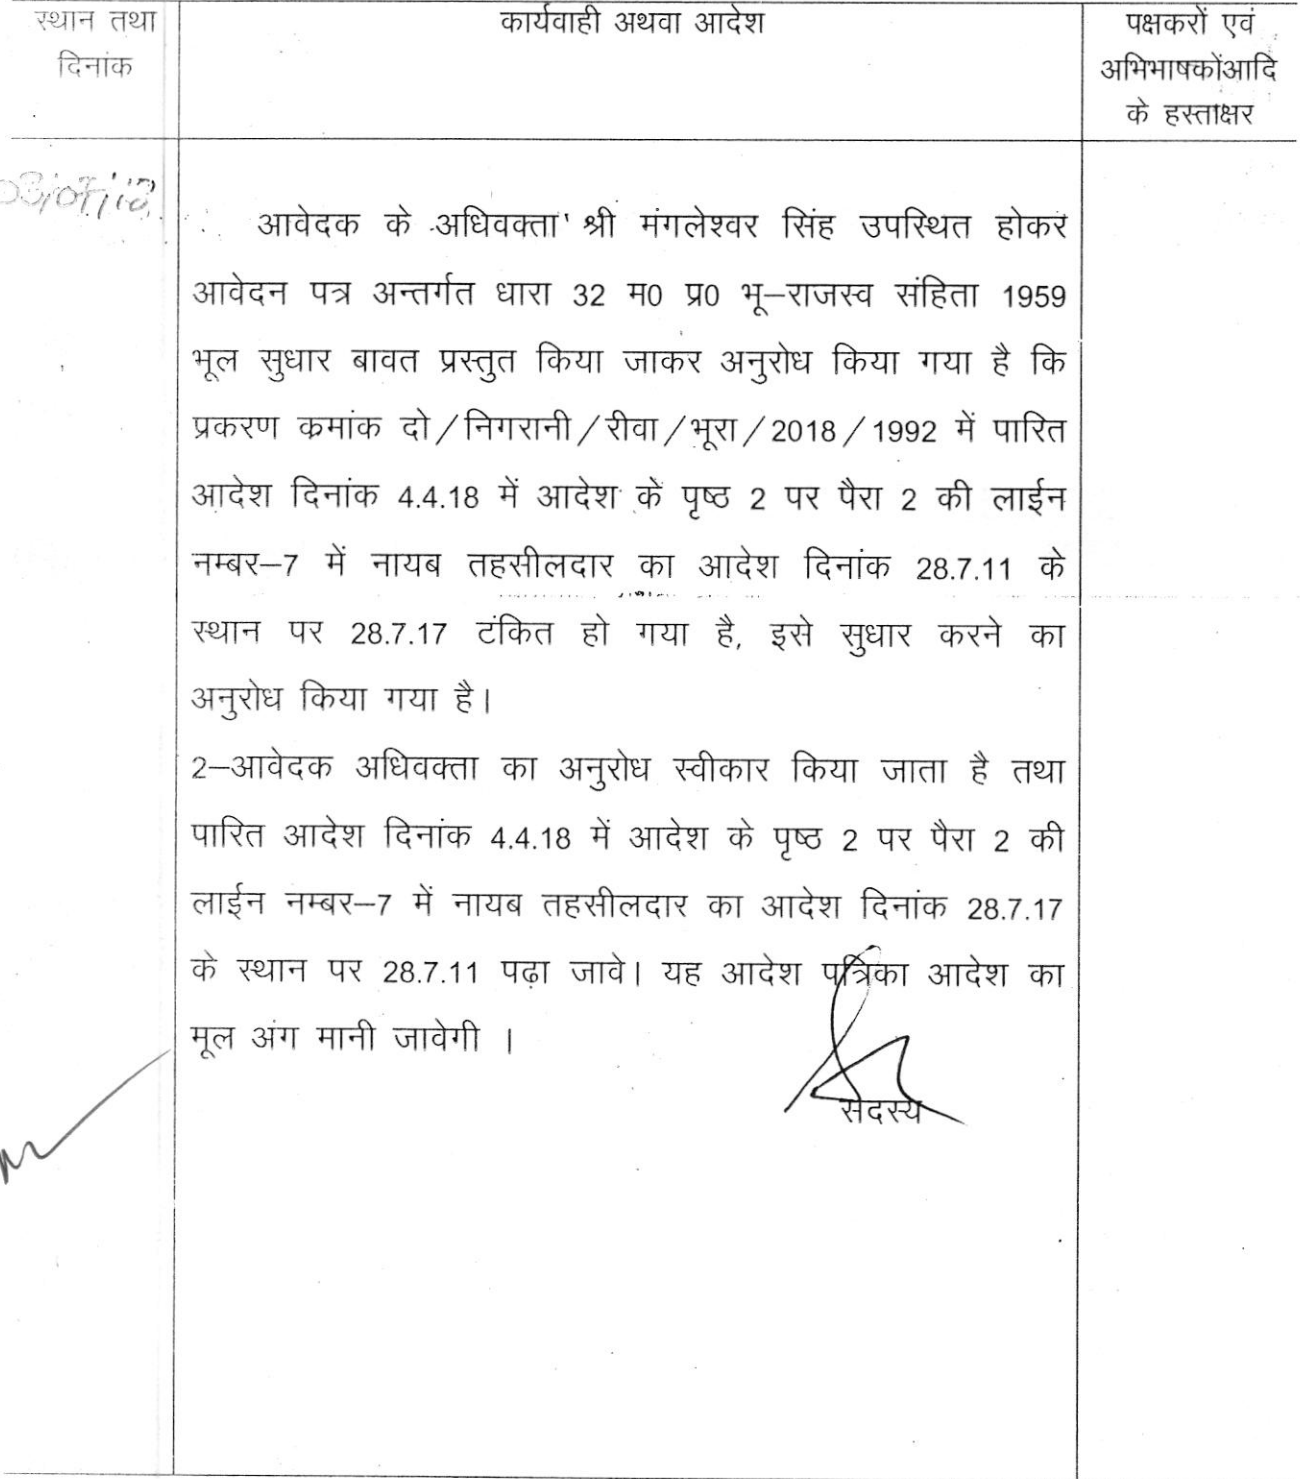 स्थान तथा
दिनांक
कार्यवाही अथवा आदेश
पक्षकरों एवं
अभिभाषकोंआदि
के हस्ताक्षर
आवेदक के अधिवक्ता श्री मंगलेश्वर सिंह उपस्थित होकर
आवेदन पत्र अन्तर्गत धारा 32 म0 प्र0 भू–राजस्व संहिता 1959
भूल सुधार बावत प्रस्तुत किया जाकर अनुरोध किया गया है कि
प्रकरण कमांक दो/निगरानी/रीवा/भूरा/2018/1992 में पारित
आदेश दिनांक 4.4.18 में आदेश के पृष्ठ 2 पर पैरा 2 की लाईन
नम्बर–7 में नायब तहसीलदार का आदेश दिनांक 28.7.11 के
स्थान पर 28.7.17 टंकित हो गया है, इसे सुधार करने का
अनुरोध किया गया है।
2–आवेदक अधिवक्ता का अनुरोध स्वीकार किया जाता है तथा
पारित आदेश दिनांक 4.4.18 में आदेश के पृष्ठ 2 पर पैरा 2 की
लाईन नम्बर–7 में नायब तहसीलदार का आदेश दिनांक 28.7.17
के स्थान पर 28.7.11 पढ़ा जावे। यह आदेश पत्रिका आदेश का
मूल अंग मानी जावेगी ।
सदस्य